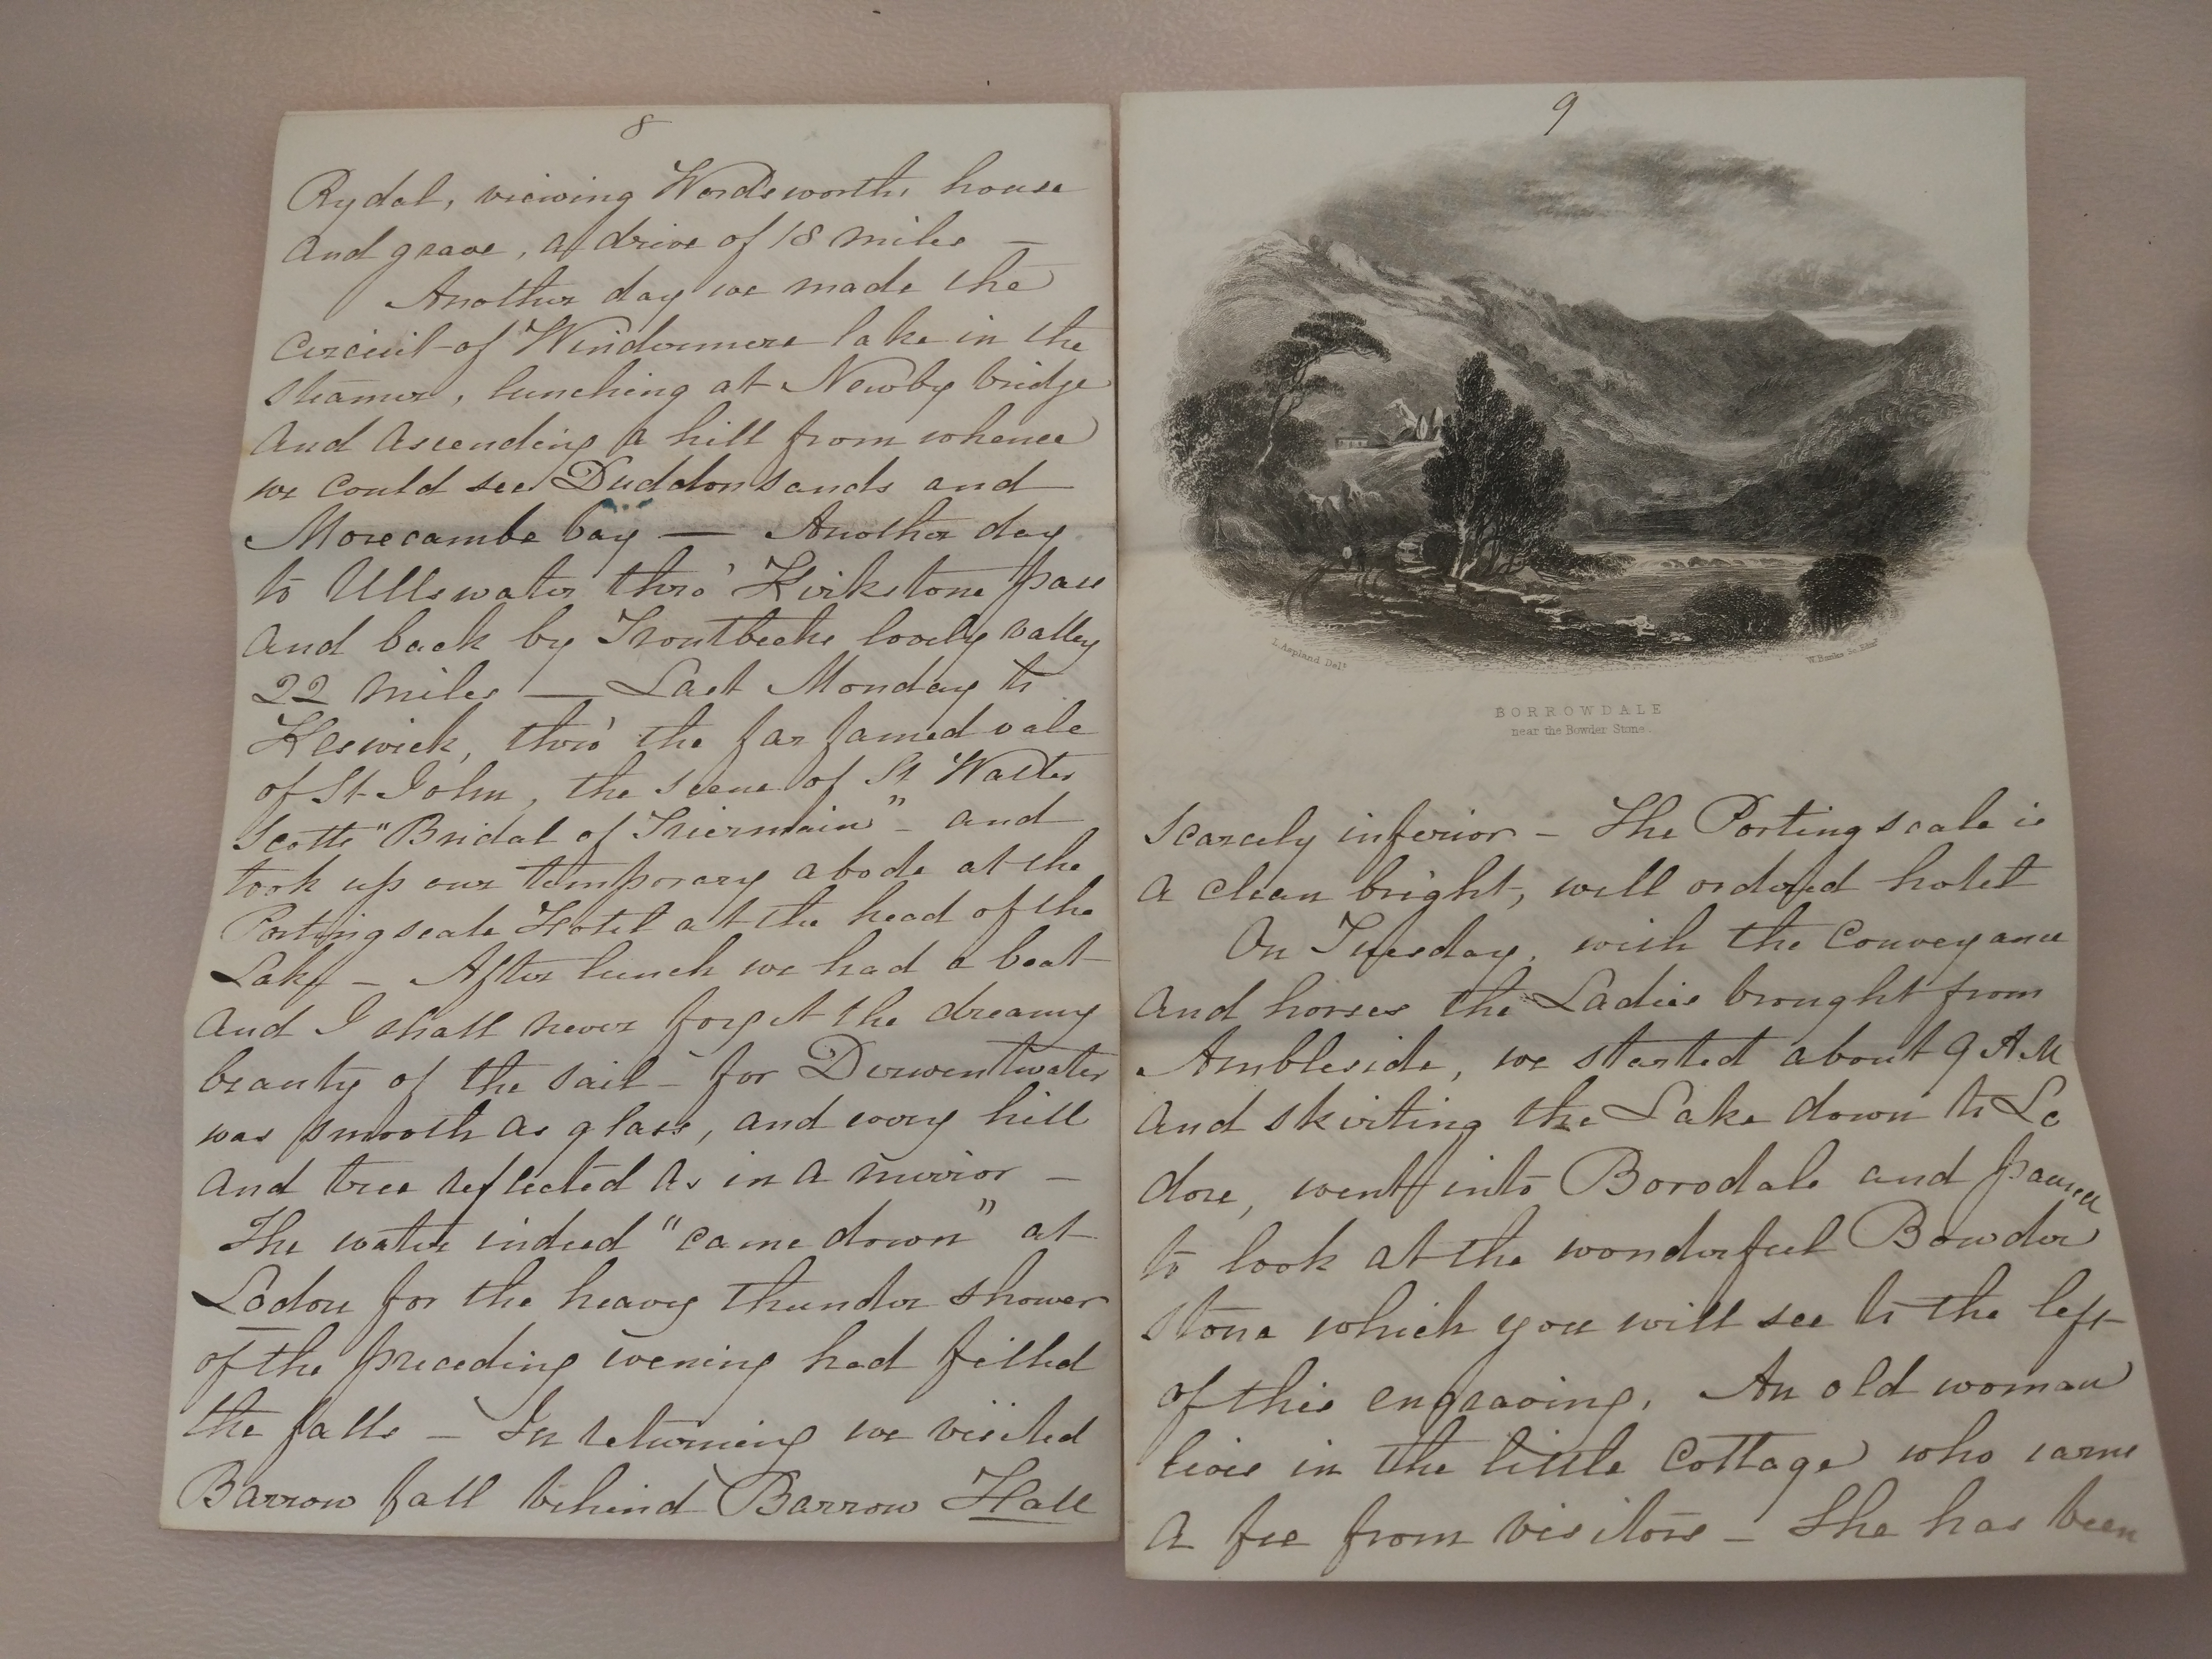 8
Rydal, viewing Wordsworths house
and grave, a drive of 18 miles —
Another day we made the
circuit of Windermere lake in the
steamer, lunching at Newby bridge
and ascending a hill from whence
we could see Duddon sands and
Morecambe bay — Another day
to Ullswater thro' Kirkstone pass
and back by Troutbecks lovely valley
22 miles — Last Monday to
Keswick, thro' the far famed vale
of St John, the scene of Sr Walter
Scotts "Bridal of Triermain" — and
took up our temporary abode at the
Portingscale Hotel at the head of the
Lake — After lunch we had a boat
and I shall never forget the dreamy
beauty of the sail — for Derwentwater
was smooth as glass, and every hill
and tree reflected as in a mirror —
The water indeed "came down" at
Lodore for the heavy thunder shower
of the preceding evening had filled
the falls — In returning we visited
Barrow fall behind Barrow Hall
9
L. Aspland Delt.
W. Banks Sc. Edinr.
BORROWDALE
near the Bowder Stone.
scarcely inferior — The Portingscale is
a clean bright, well ordered hotel
On Tuesday, with the conveyance
and horses the Ladies brought from
Ambleside, we started about 9 AM
and skirting the Lake down to Lo
dore, went into Borodale and paused
to look at the wonderful Bowder
stone which you will see to the left
of this engraving. An old woman
lives in the little cottage who earns
a fee from visitors — She has been